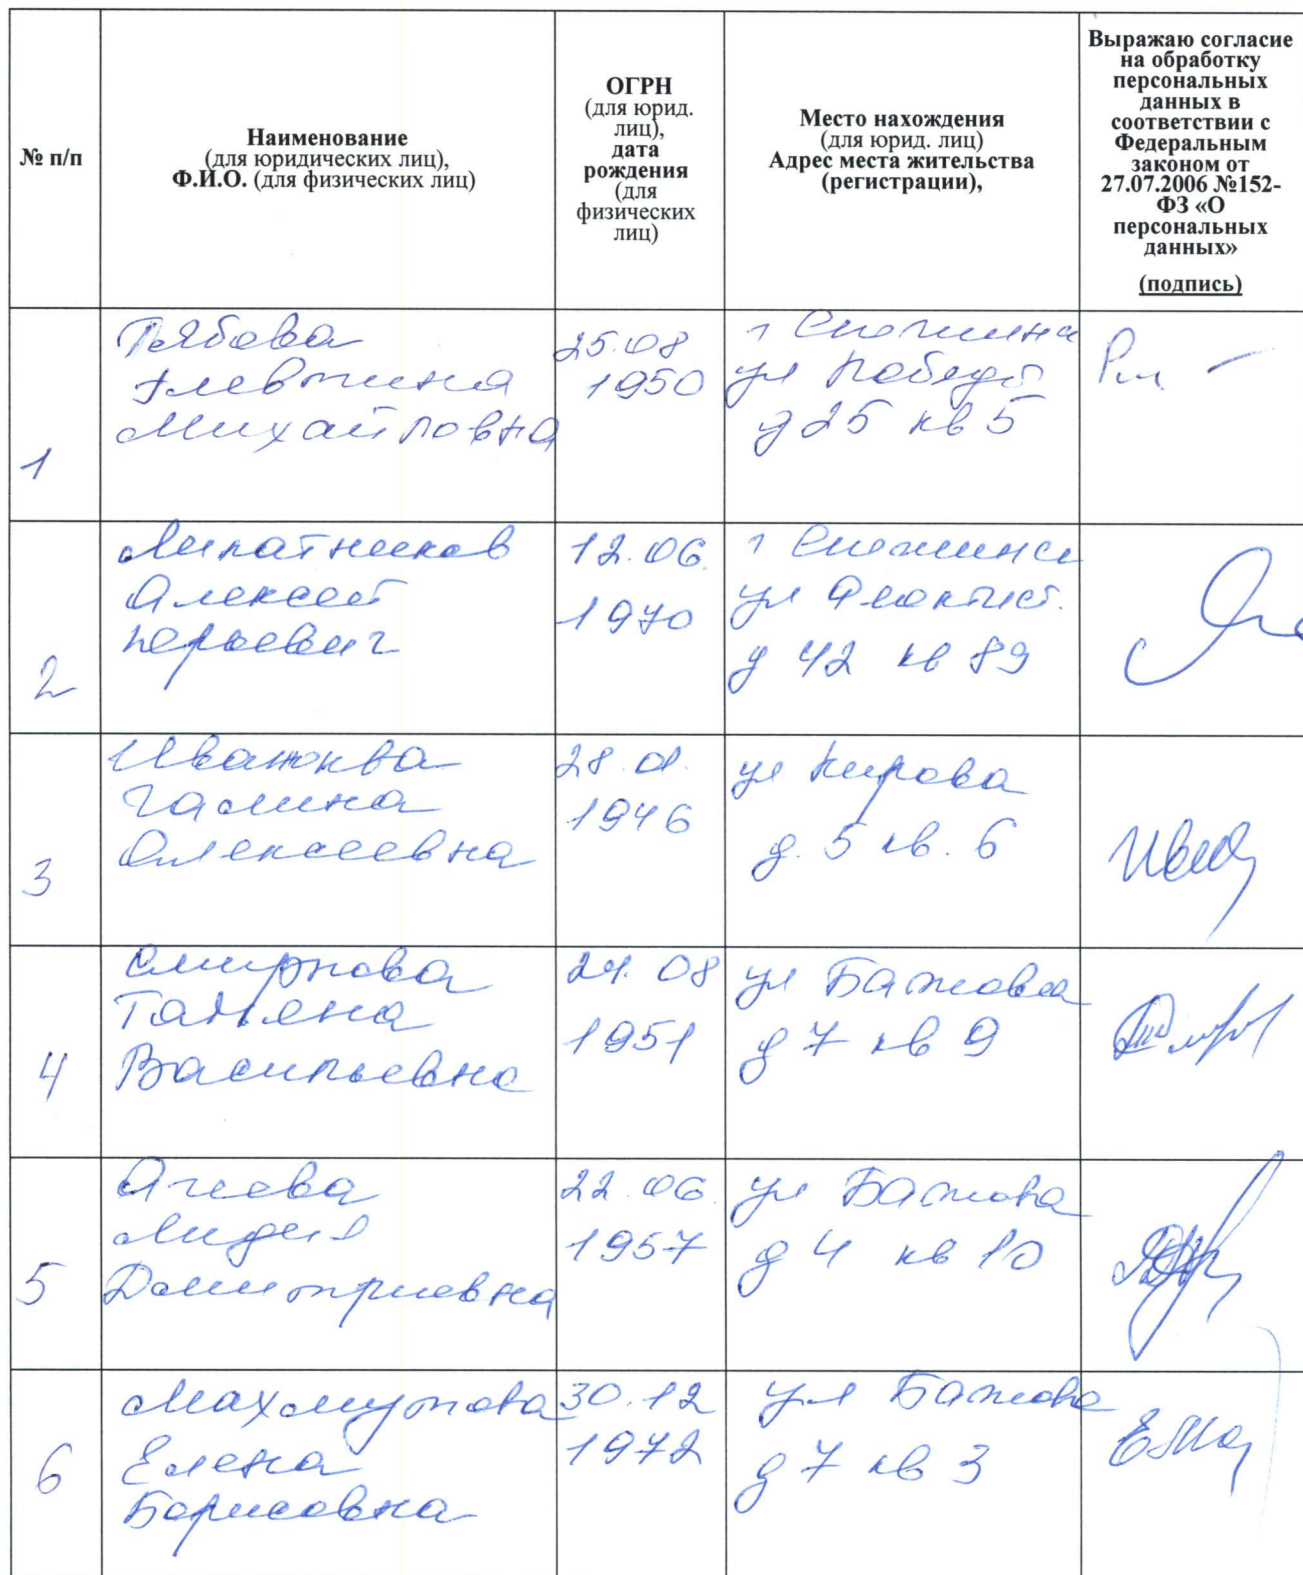 № п/п
Наименование
(для юридических лиц),
Ф.И.О. (для физических лиц)
ОГРН
(для юрид.
лиц),
дата
рождения
(для
физических
лиц)
Место нахождения
(для юрид. лиц)
Адрес места жительства
(регистрации),
Выражаю согласие
на обработку
персональных
данных в
соответствии с
Федеральным
законом от
27.07.2006 №152-
ФЗ «О
персональных
данных»
(подпись)
1
Рябова
Алевтина
Михайловна
25.08
1950
г Снежинск
ул Победы
д 25 кв 5
2
Алексей
Юрьевич
12.06.
1970
г Снежинск
ул Феоктист.
д 42 кв 89
3
Галина
Алексеевна
28.01.
1946
ул Кирова
д. 5 кв. 6
4
Смирнова
Татьяна
Васильевна
24.08
1951
ул Бажова
д 7 кв 9
5
Агеева
Лидия
Дмитриевна
22.06.
1957
ул Бажова
д 4 кв 10
6
Махмутова
Елена
Борисовна
30.12
1972
ул Бажова
д 7 кв 3